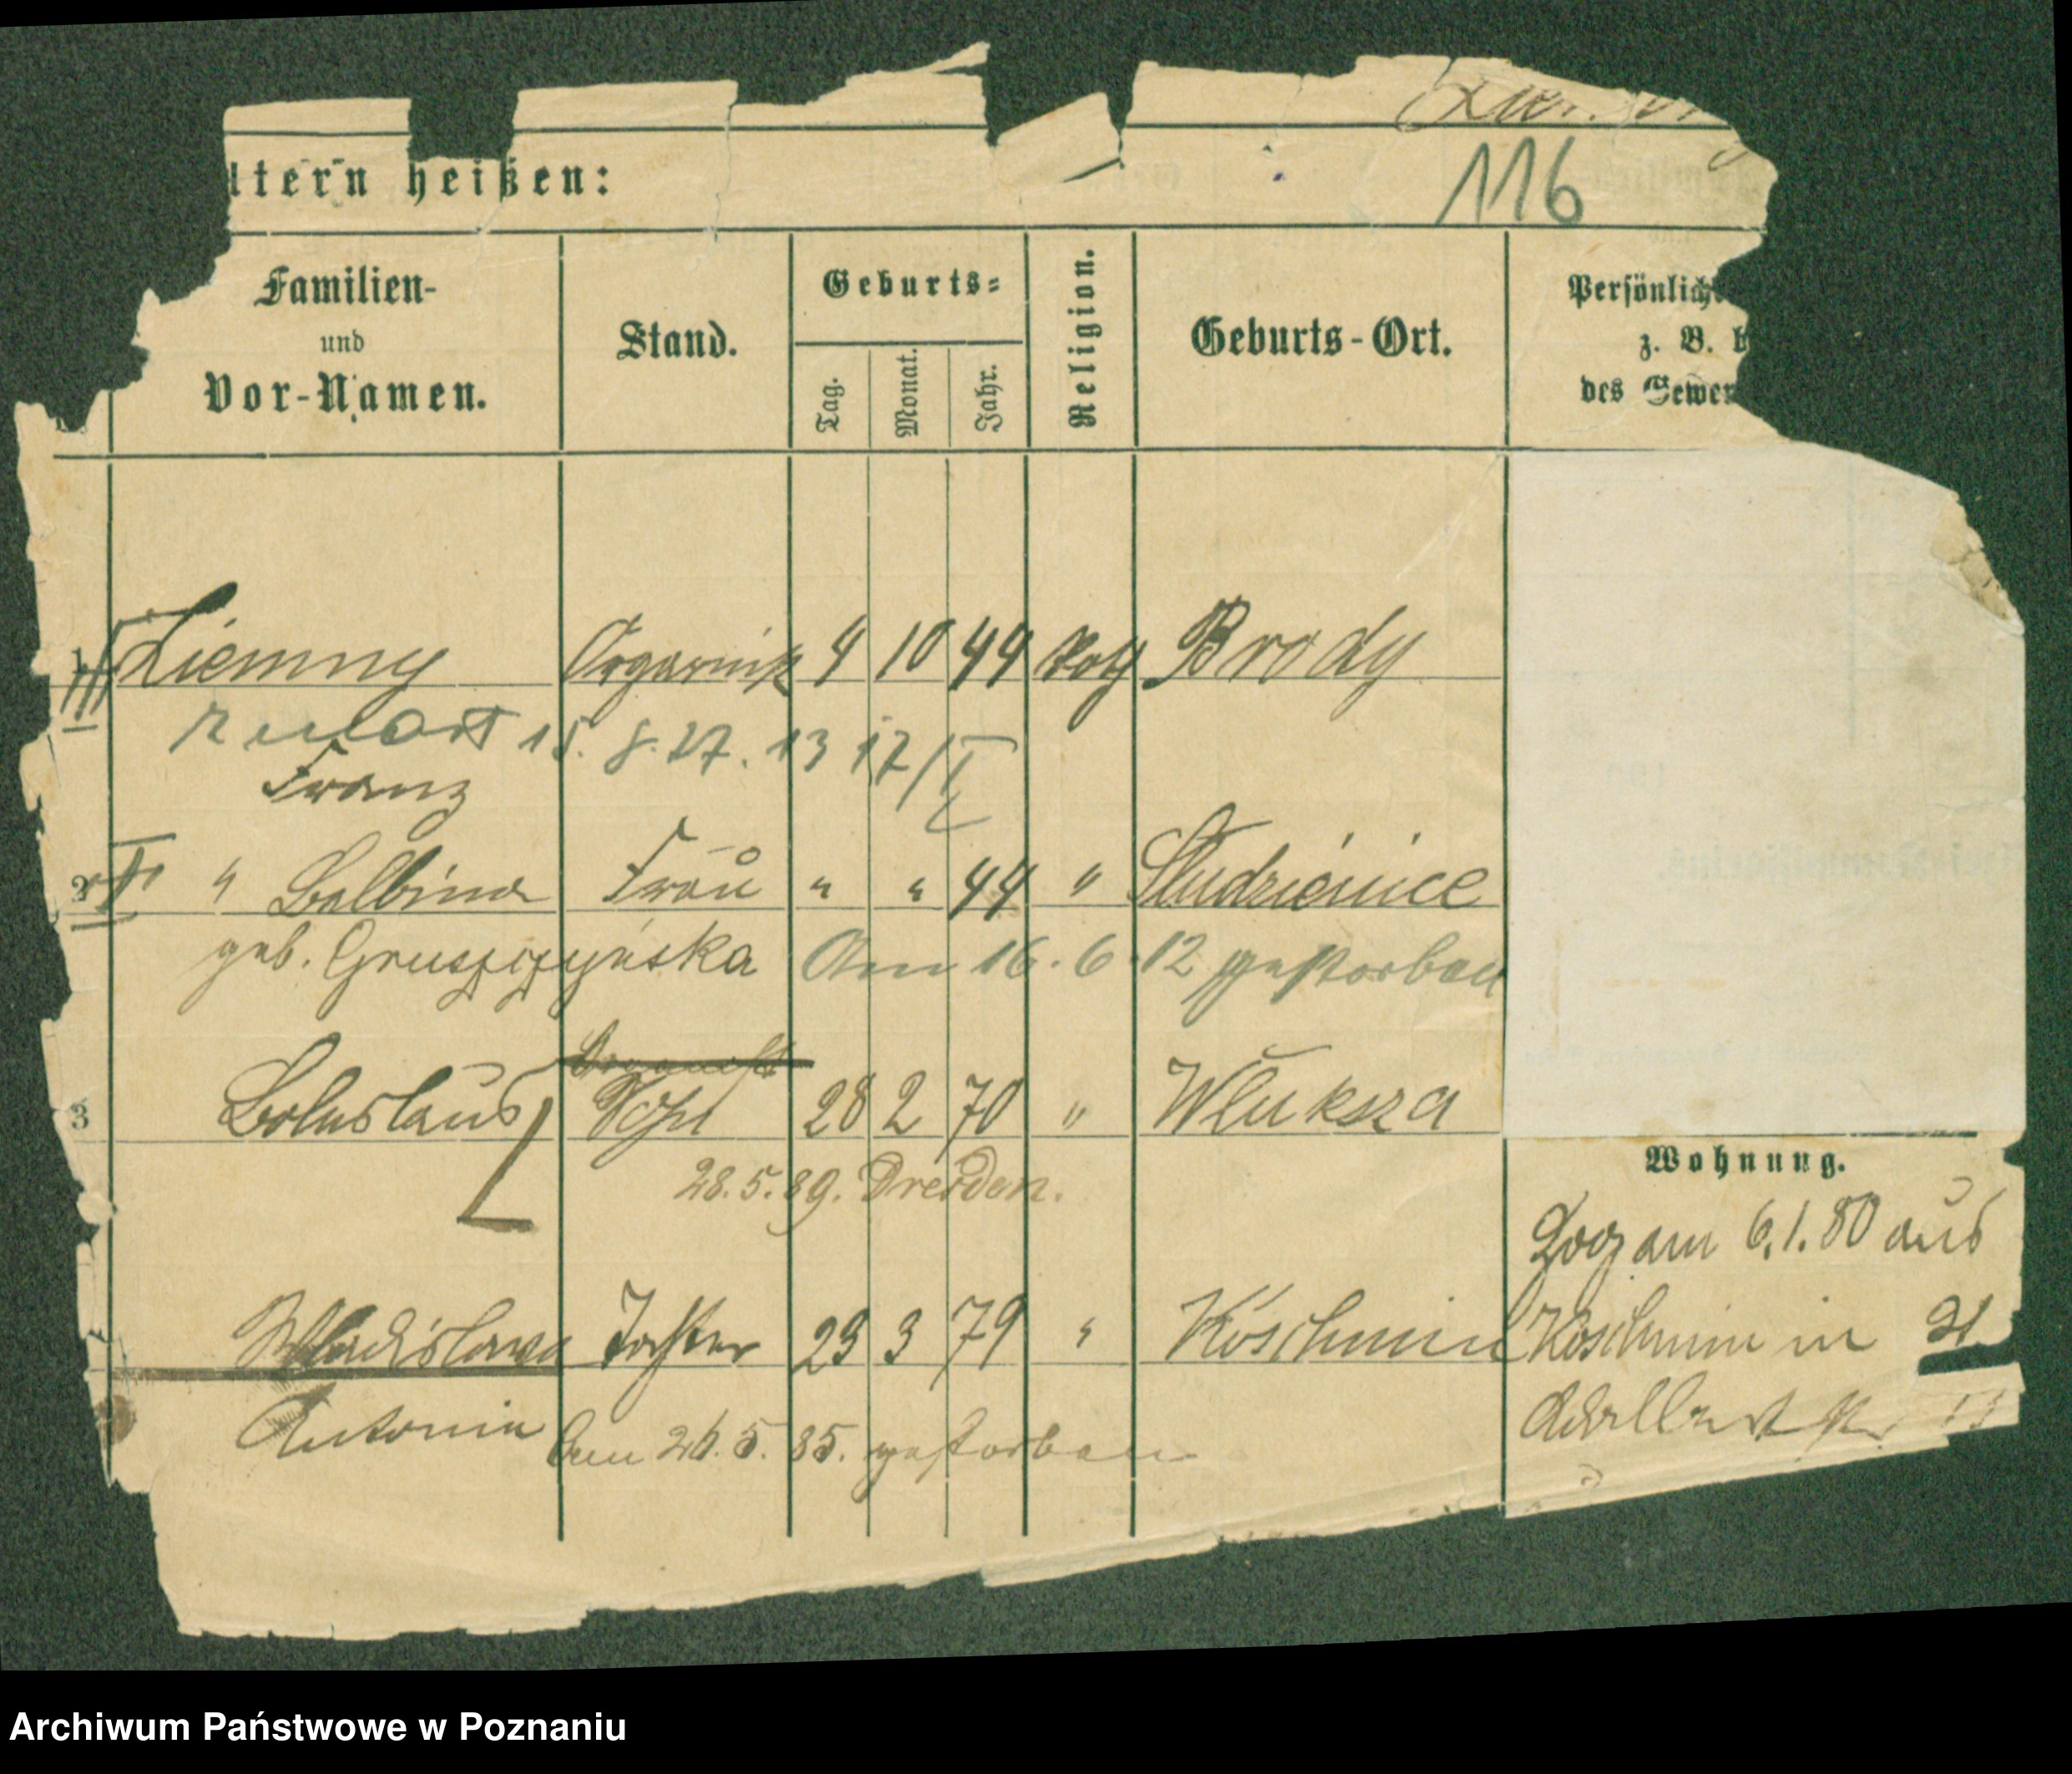 116
ltern heißen:
Familien-
und
Vor-Namen.
Stand.
Geburts=
Tag.
Monat.
Jahr.
Religion.
Geburts-Ort.
Persönlich
z. B. b
des Gewer
1 Ziemny Organist 4 10 44 kath Brody
zmarł 15. 8. 27. 13 17/I
Franz
2 " Balbina Frau " " 44 " Studzienice
geb. Gruszczyńska Am 16. 6. 12 gestorben
3 Boleslaus Sohn 28 2 70 " Wluksza
28. 5. 89. Dresden.
Wohnung.
Zog am 6. 1. 80 aus
Wladislawa Tochter 23 3 79 " Koschmin Koschmin in
Antonin Am 26. 5. 85. gestorben
Archiwum Państwowe w Poznaniu